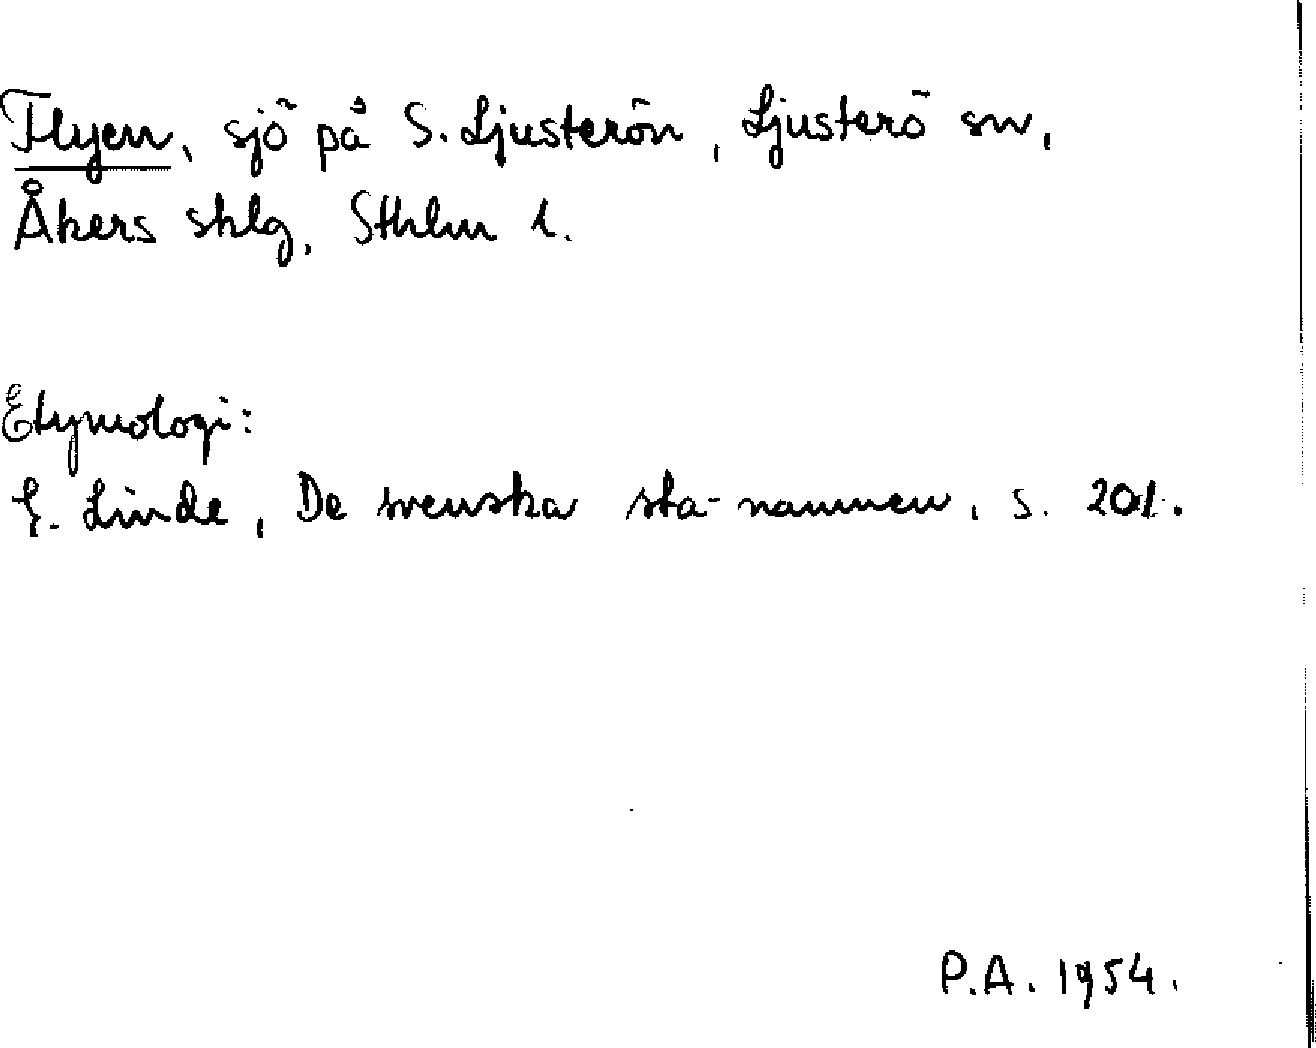 Flyen, sjö på S. Ljusterön, Ljusterö sn,
Åkers sklg, Sthlm l.
Etymologi:
G. Linde, De svenska sta-namnen, s. 201.
P.A. 1954.